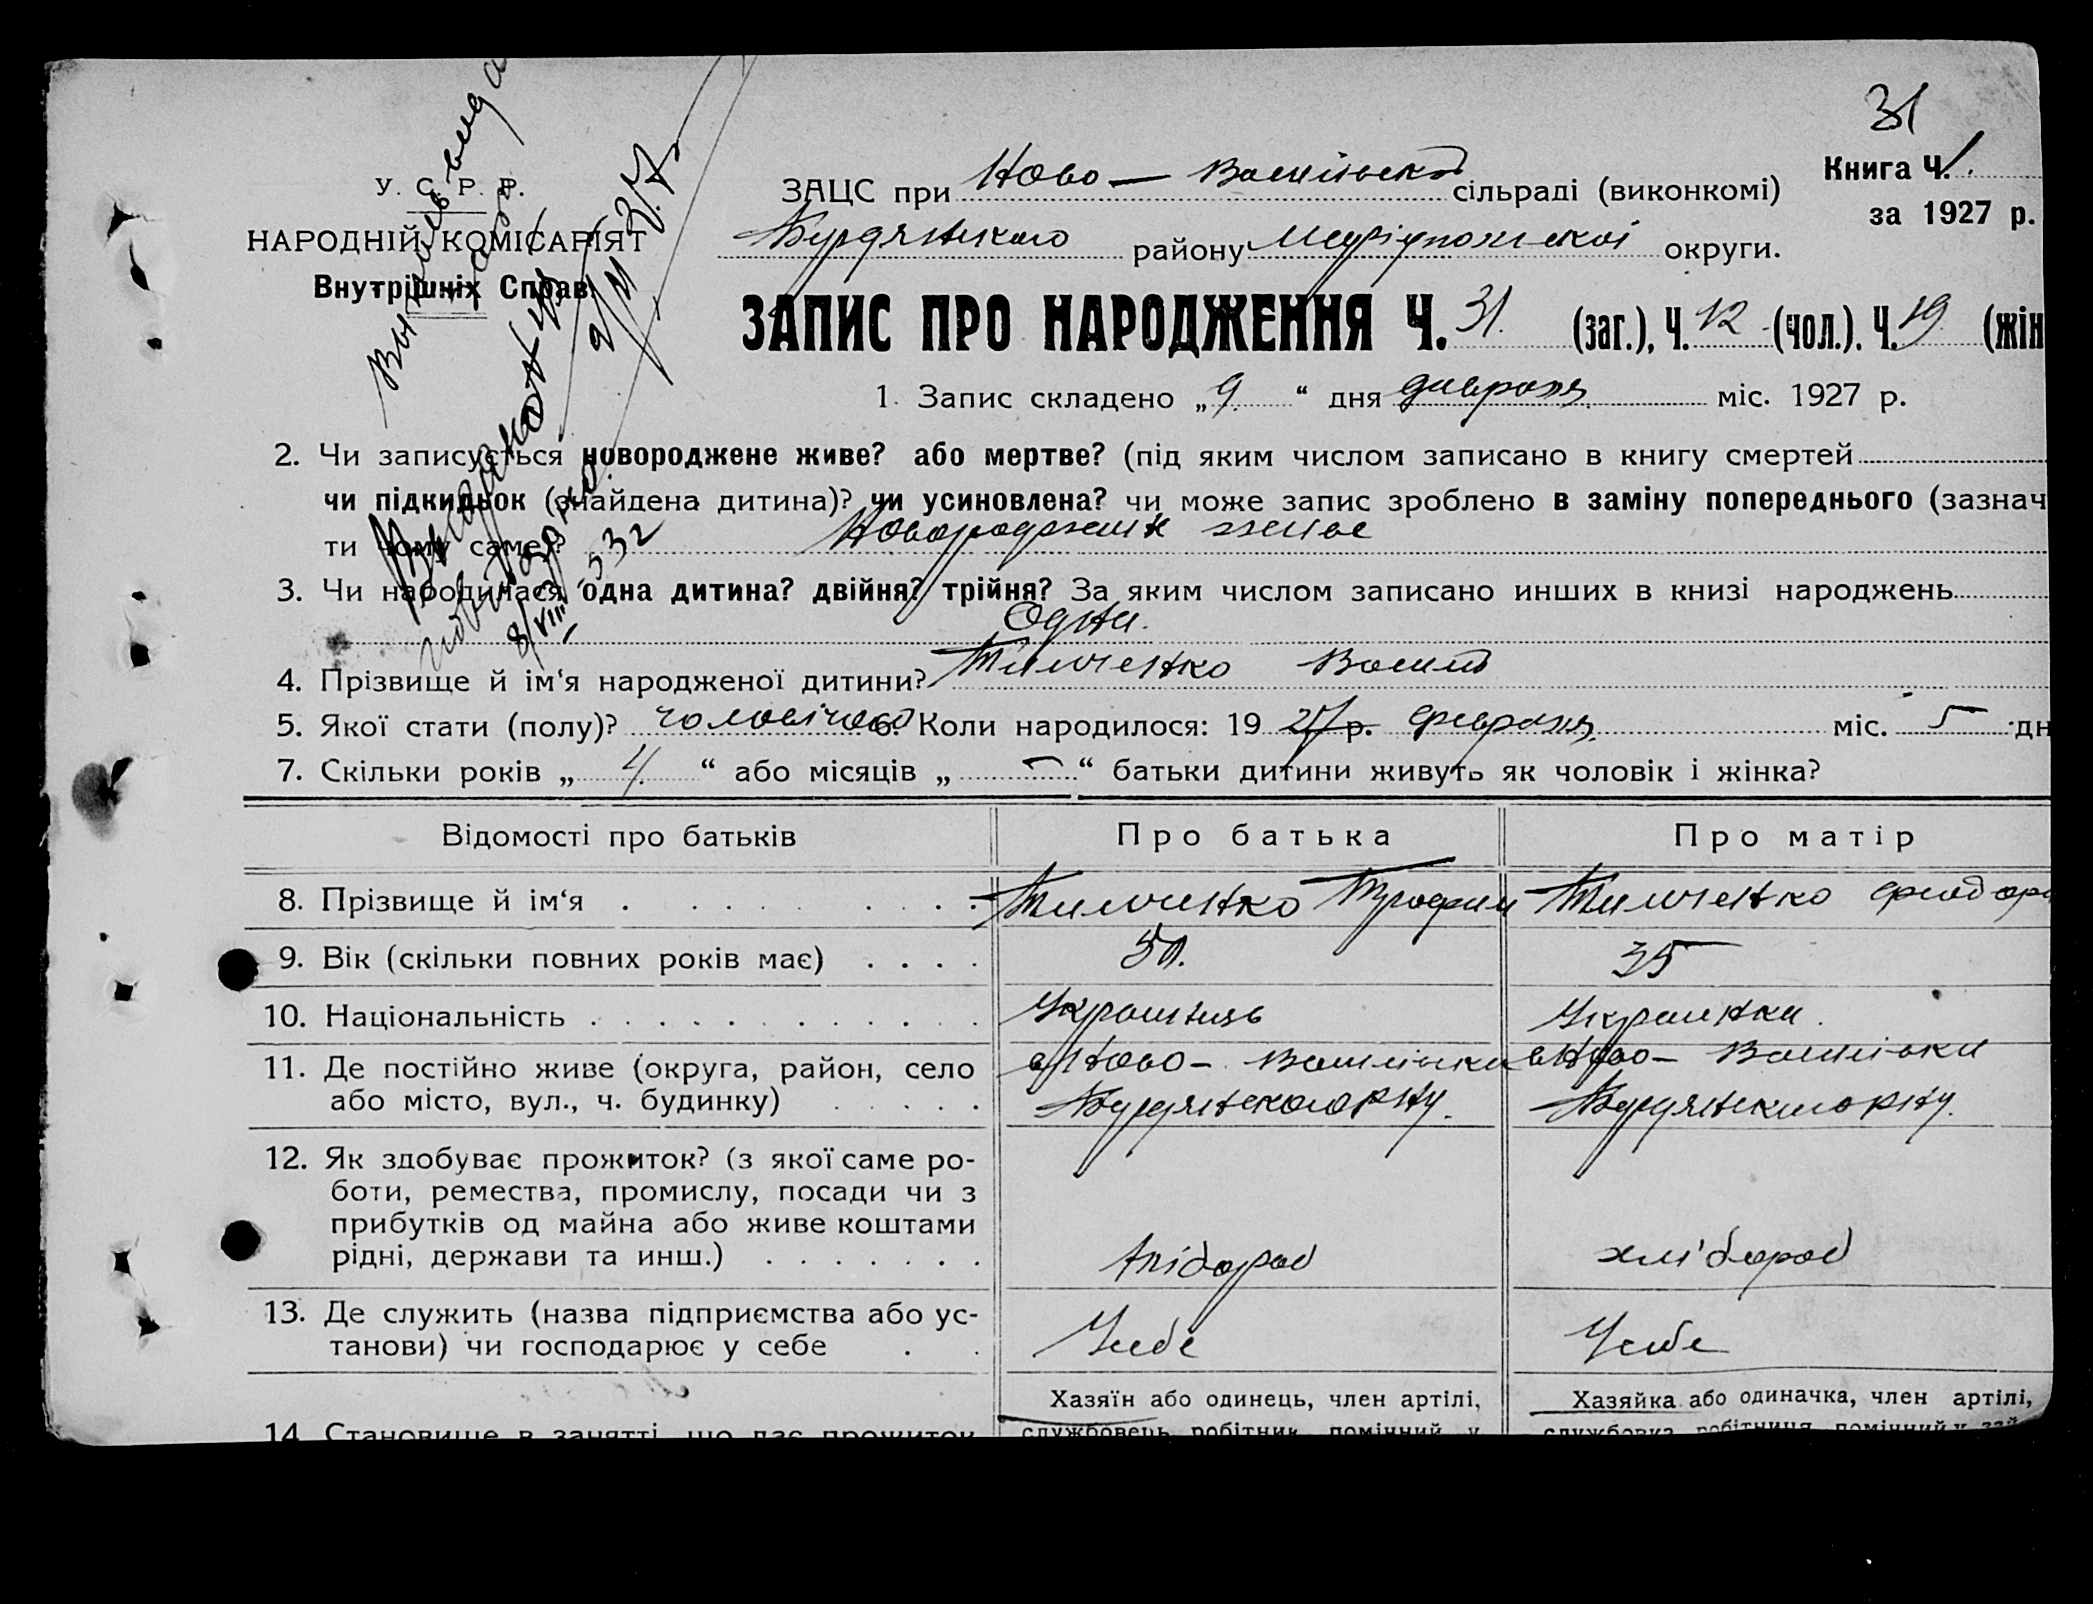 31
У. С. Р. Р.
НАРОДНІЙ КОМІСАРІЯТ
Внутрішніх Справ.
ЗАЦС при Ново — Василівской сільраді (виконкомі)
Бердянського району Маріупольской округи.
Книга Ч. 1.
за 1927 р.
ЗАПИС ПРО НАРОДЖЕННЯ Ч. 31. (заг.), Ч. 12 (чол.). Ч. 19 (жін
1. Запис складено „9.“ дня февраля міс. 1927 р.
2. Чи записується новороджене живе? або мертве? (під яким числом записано в книгу смертей
чи підкидьок (знайдена дитина)? чи усиновлена? чи може запис зроблено в заміну попереднього (зазнач
ти чому саме)?
3. Чи народилася одна дитина? двійня? трійня? За яким числом записано инших в книзі народжень
Одна.
4. Прізвище й ім‘я народженої дитини? Тимченко Василь
5. Якої стати (полу)? чоловічого 6. Коли народилося: 19 27 р. февраля міс. 5 дн
7. Скільки років „ 4. “ або місяців „ — “ батьки дитини живуть як чоловік і жінка?
Відомості про батьків Про батька Про матір
8. Прізвище й ім‘я Тимченко Трофим Тимченко Феодора
9. Вік (скільки повних років має) 50. 35
10. Національність Українець Українка.
11. Де постійно живе (округа, район, село с Ново — Василівка с Ново — Василівка
або місто, вул., ч. будинку) Бердянского р-ну. Бердянского р-ну.
12. Як здобуває прожиток? (з якої саме ро-
боти, ремества, промислу, посади чи з
прибутків од майна або живе коштами
рідні, держави та инш.) Хлібороб хлібороб
13. Де служить (назва підприємства або ус-
танови) чи господарює у себе У себе У себе
Хазяїн або одинець, член артілі, Хазяйка або одиначка, член артілі,
14. Становище в занятті, що дає прожиток службовець, робітник, помічний у службовка, робітниця, помічний у зай